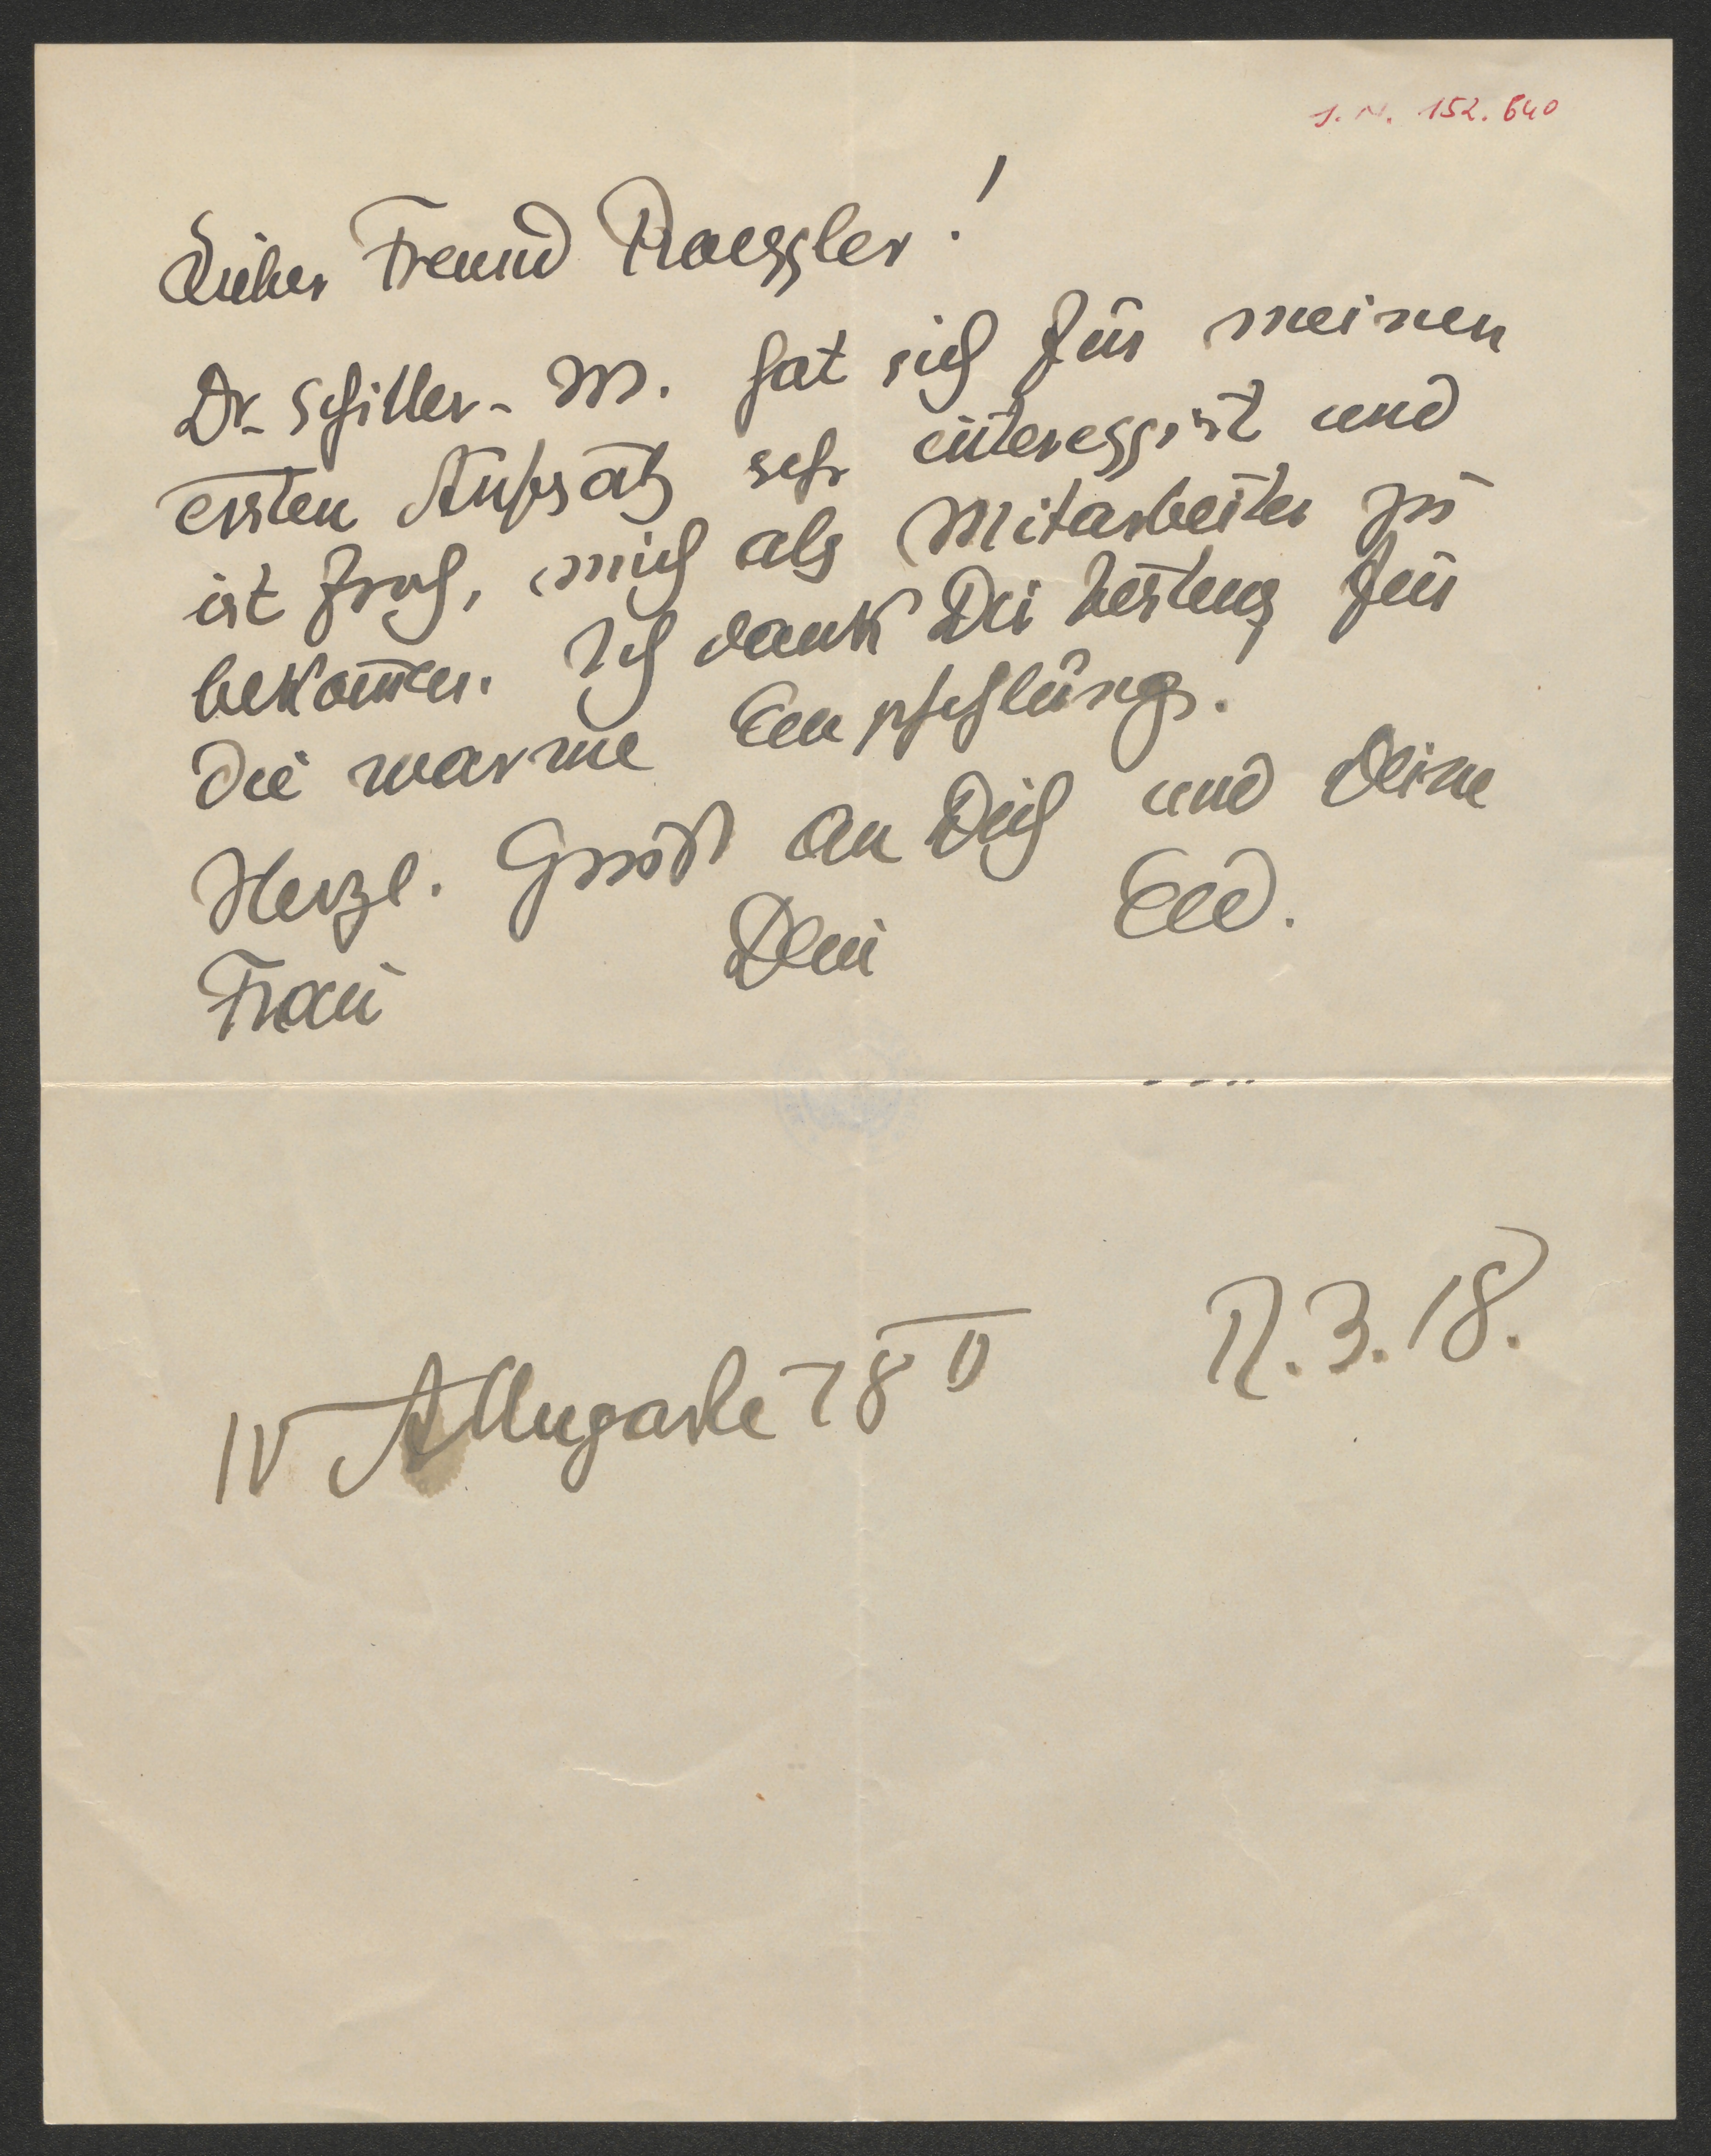 I. N. 152.640
Lieber Freund Roessler!
Dr. Schiller-M. hat sich für meinen
ersten Aufsatz sehr interessirt und
ist froh, mich als Mitarbeiter zu
bekom̅en. Ich dank Dir bestens für
die warme Empfehlung.
Herzl. Gruß an Dich und Deine
Frau Dein Ed.
IV Alleegasse 78 II 12.3.18.